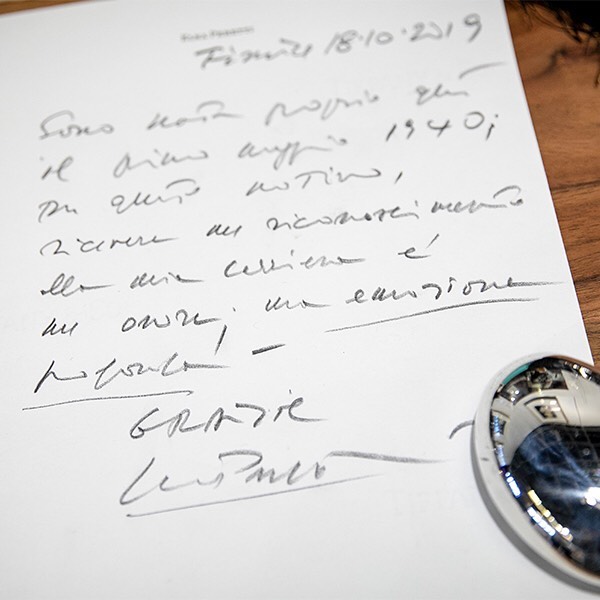 Firenze 18.10.2019
Sono nata proprio qui
il primo maggio 1940;
per questo motivo,
ricevere un riconoscimento
alla mia carriera è
un onore; una emozione
profonda! -
GRAZIE